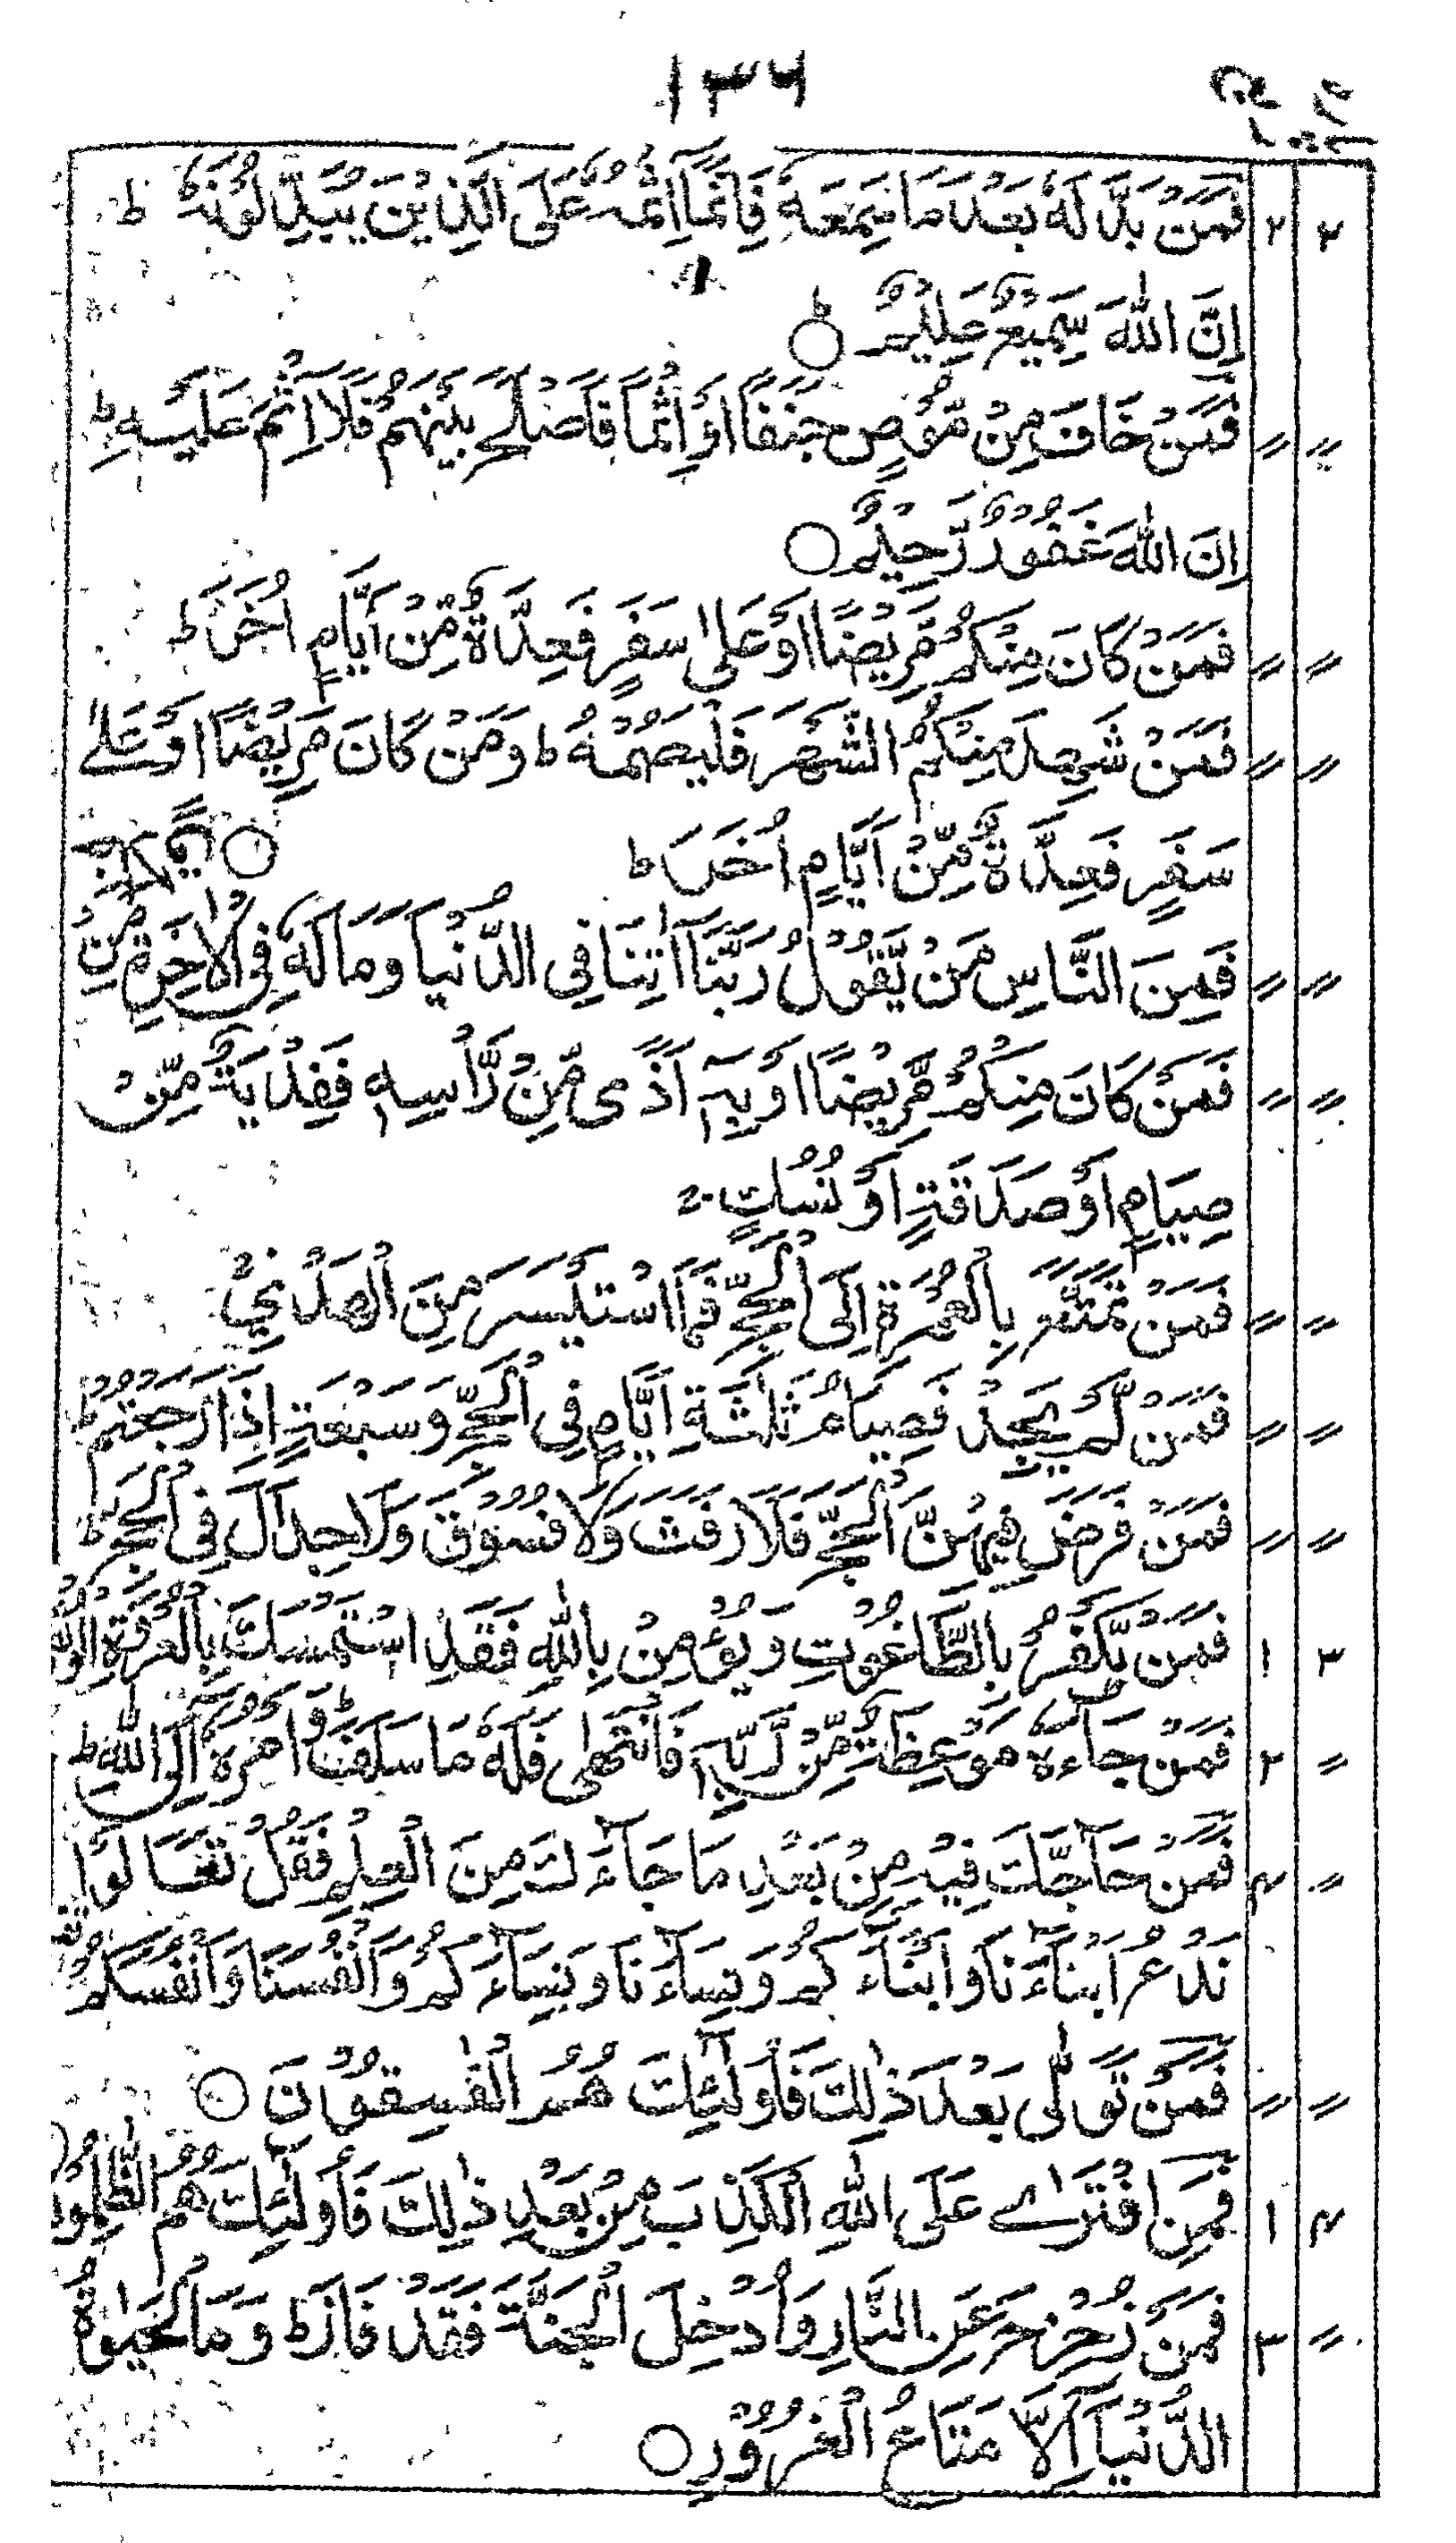 ۱۳۶
۲ ۲ فَمَنْۢ بَدَّلَهٗ بَعْدَ مَا سَمِعَهٗ فَاِنَّمَاۤ اِثْمُهٗ عَلَى الَّذِيْنَ يُبَدِّلُوْنَهٗ ؕ ط
اِنَّ اللّٰهَ سَمِيْعٌ عَلِيْمٌ ؕ○
〃 〃 فَمَنْ خَافَ مِنْ مُّوْصٍ جَنَفًا اَوْ اِثْمًا فَاَصْلَحَ بَيْنَهُمْ فَلَاۤ اِثْمَ عَلَيْهِ ؕ
اِنَ اللّٰهَ غَفُوْرٌ رَّحِيْمٌ ○
〃 〃 فَمَنْ كَانَ مِنْكُمْ مَّرِيْضًا اَوْ عَلٰى سَفَرٍ فَعِدَّةٌ مِّنْ اَيَّامٍ اُخَرَ ؕ
〃 〃 فَمَنْ شَهِدَ مِنْكُمُ الشَّهْرَ فَلْيَصُمْهُ ؕ وَمَنْ كَانَ مَرِيْضًا اَوْ عَلٰى
سَفَرٍ فَعِدَّةٌ مِّنْ اَيَّامٍ اُخَرَ ؕ ○
〃 〃 فَمِنَ النَّاسِ مَنْ يَّقُوْلُ رَبَّنَاۤ اٰتِنَا فِى الدُّنْيَا وَمَا لَهٗ فِى الْاٰخِرَةِ مِنْ
〃 〃 فَمَنْ كَانَ مِنْكُمْ مَّرِيْضًا اَوْ بِهٖۤ اَذًى مِّنْ رَّاْسِهٖ فَفِدْيَةٌ مِّنْ
صِيَامٍ اَوْ صَدَقَةٍ اَوْ نُسُكٍ ۚ
〃 〃 فَمَنْ تَمَتَّعَ بِالْعُمْرَةِ اِلَى الْحَجِّ فَمَا اسْتَيْسَرَ مِنَ الْهَدْيِ ۚ
〃 〃 فَمَنْ لَّمْ يَجِدْ فَصِيَامُ ثَلٰثَةِ اَيَّامٍ فِى الْحَجِّ وَسَبْعَةٍ اِذَا رَجَعْتُمْ ؕ
〃 〃 فَمَنْ فَرَضَ فِيْهِنَّ الْحَجَّ فَلَا رَفَثَ وَلَا فُسُوْقَ وَلَا جِدَالَ فِى الْحَجِّ ؕ
۳ ۱ فَمَنْ يَّكْفُرْ بِالطَّاغُوْتِ وَيُؤْمِنْۢ بِاللّٰهِ فَقَدِ اسْتَمْسَكَ بِالْعُرْوَةِ الْوُثْقٰى
〃 ۲ فَمَنْ جَآءَهٗ مَوْعِظَةٌ مِّنْ رَّبِّهٖ فَانْتَهٰى فَلَهٗ مَا سَلَفَ ؕ وَاَمْرُهٗۤ اِلَى اللّٰهِ ؕ
〃 ۴ فَمَنْ حَآجَّكَ فِيْهِ مِنْۢ بَعْدِ مَا جَآءَكَ مِنَ الْعِلْمِ فَقُلْ تَعَالَوْا
نَدْعُ اَبْنَآءَنَا وَاَبْنَآءَكُمْ وَنِسَآءَنَا وَنِسَآءَكُمْ وَاَنْفُسَنَا وَاَنْفُسَكُمْ
〃 〃 فَمَنْ تَوَلّٰى بَعْدَ ذٰلِكَ فَاُولٰٓئِكَ هُمُ الْفٰسِقُوْنَ ○
۴ ۱ فَمَنِ افْتَرٰے عَلَى اللّٰهِ الْكَذِبَ مِنْۢ بَعْدِ ذٰلِكَ فَاُولٰٓئِكَ هُمُ الظّٰلِمُوْنَ
〃 ۳ فَمَنْ زُحْزِحَ عَنِ النَّارِ وَاُدْخِلَ الْجَنَّةَ فَقَدْ فَازَ ؕ وَمَا الْحَيٰوةُ
الدُّنْيَاۤ اِلَّا مَتَاعُ الْغُرُوْرِ ○